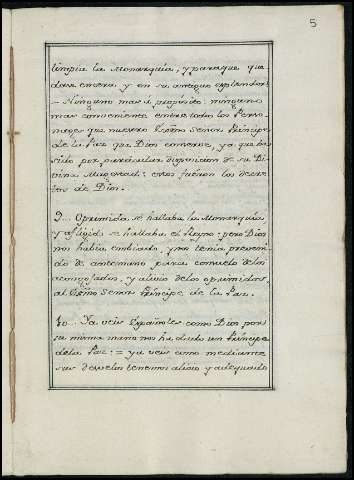 5
limpia la Monarquia, y paraque que
dara entera y en su antiguo esplendor:
= Ninguno mas a proposito: ninguno
mas conveniente entre todos los Perso
nages que nuestro Exsmo Señor Principe
de la Paz que Dios conserve, ya que ha
sido por particular disposicion de su Di
vina Magestad: estos fueron los decre
tos de Dios.
9... Oprimida se hallaba la Monarquia
y afligido se hallaba el Reyno: pero Dios
nos havia embiado, y nos tenia preveni
do de antemano para consuelo delos
acongojados, y alivio delos oprimidos,
al Exsmo Señor Principe de la Paz.
10... Ya veis Españoles como Dios por
su misma mano nos ha dado un Principe
dela Paz: = ya veis como mediante
sus desvelos tenemos alivio y adequado